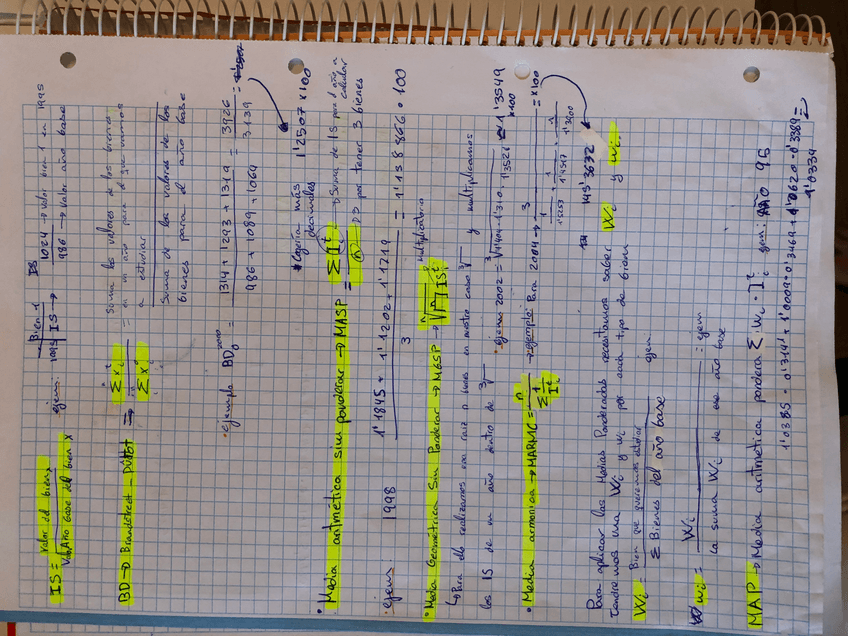 Bien 1
IS = Valor del bien x / Valor Año base del bien x
ejem: 1995 IS → 1024 → valor bien 1 en 1995
986 → valor año base
BD → Brandstreet - DÛTOT ⇒ Σ x_i^t / Σ x_i^0 = Suma los valores de los bienes en un año para el que vamos a estudiar / Suma de los valores de los bienes para el año base
· ejemplo BD_0 = 1314 + 1293 + 1319 / 986 + 1089 + 1064 = 3926 / 3139 =
* Cogerías más decimales 1'2507 x 100
• Media aritmética sin ponderar → MASP = Σ I_i^t / n → Suma de IS para 1 año a calcular
→ 3 por tener 3 bienes
ejem: 1998 1'1845 + 1'1202 + 1'1719 / 3 = 1'158866 · 100
• Media Geométrica Sin Ponderar → MGSP → ⁿ√∏ IS_i^t multiplicatorio
↳ Para ello realizamos una raiz n bienes en nuestro caso ³√ y multiplicamos
los IS de un año dentro de ³√ · ejem: 2002 = ³√1'1404 · 1'310 · 1'3521 = 1'3549 x100
• Media armonica → MARMC = n / Σ 1/I_i^t → ejemplo: Para 2004 → 3 / = x100
145'3632
Para aplicar las Medias Ponderadas necesitamos saber Wi y wi
tendremos una Wi y wi por cada tipo de bien
Wi = Bien que queremos estudiar / Σ Bienes del año base ejem
wi = Wi / La suma Wi de ese año base : ejem
MAP → Media aritmética pondera Σ · wi · I_i^t ejem: Año 96
1'0385 · 0'3141 + 1'0009 · 0'3469 + 1'0620 · 0'3389 =
1'0334